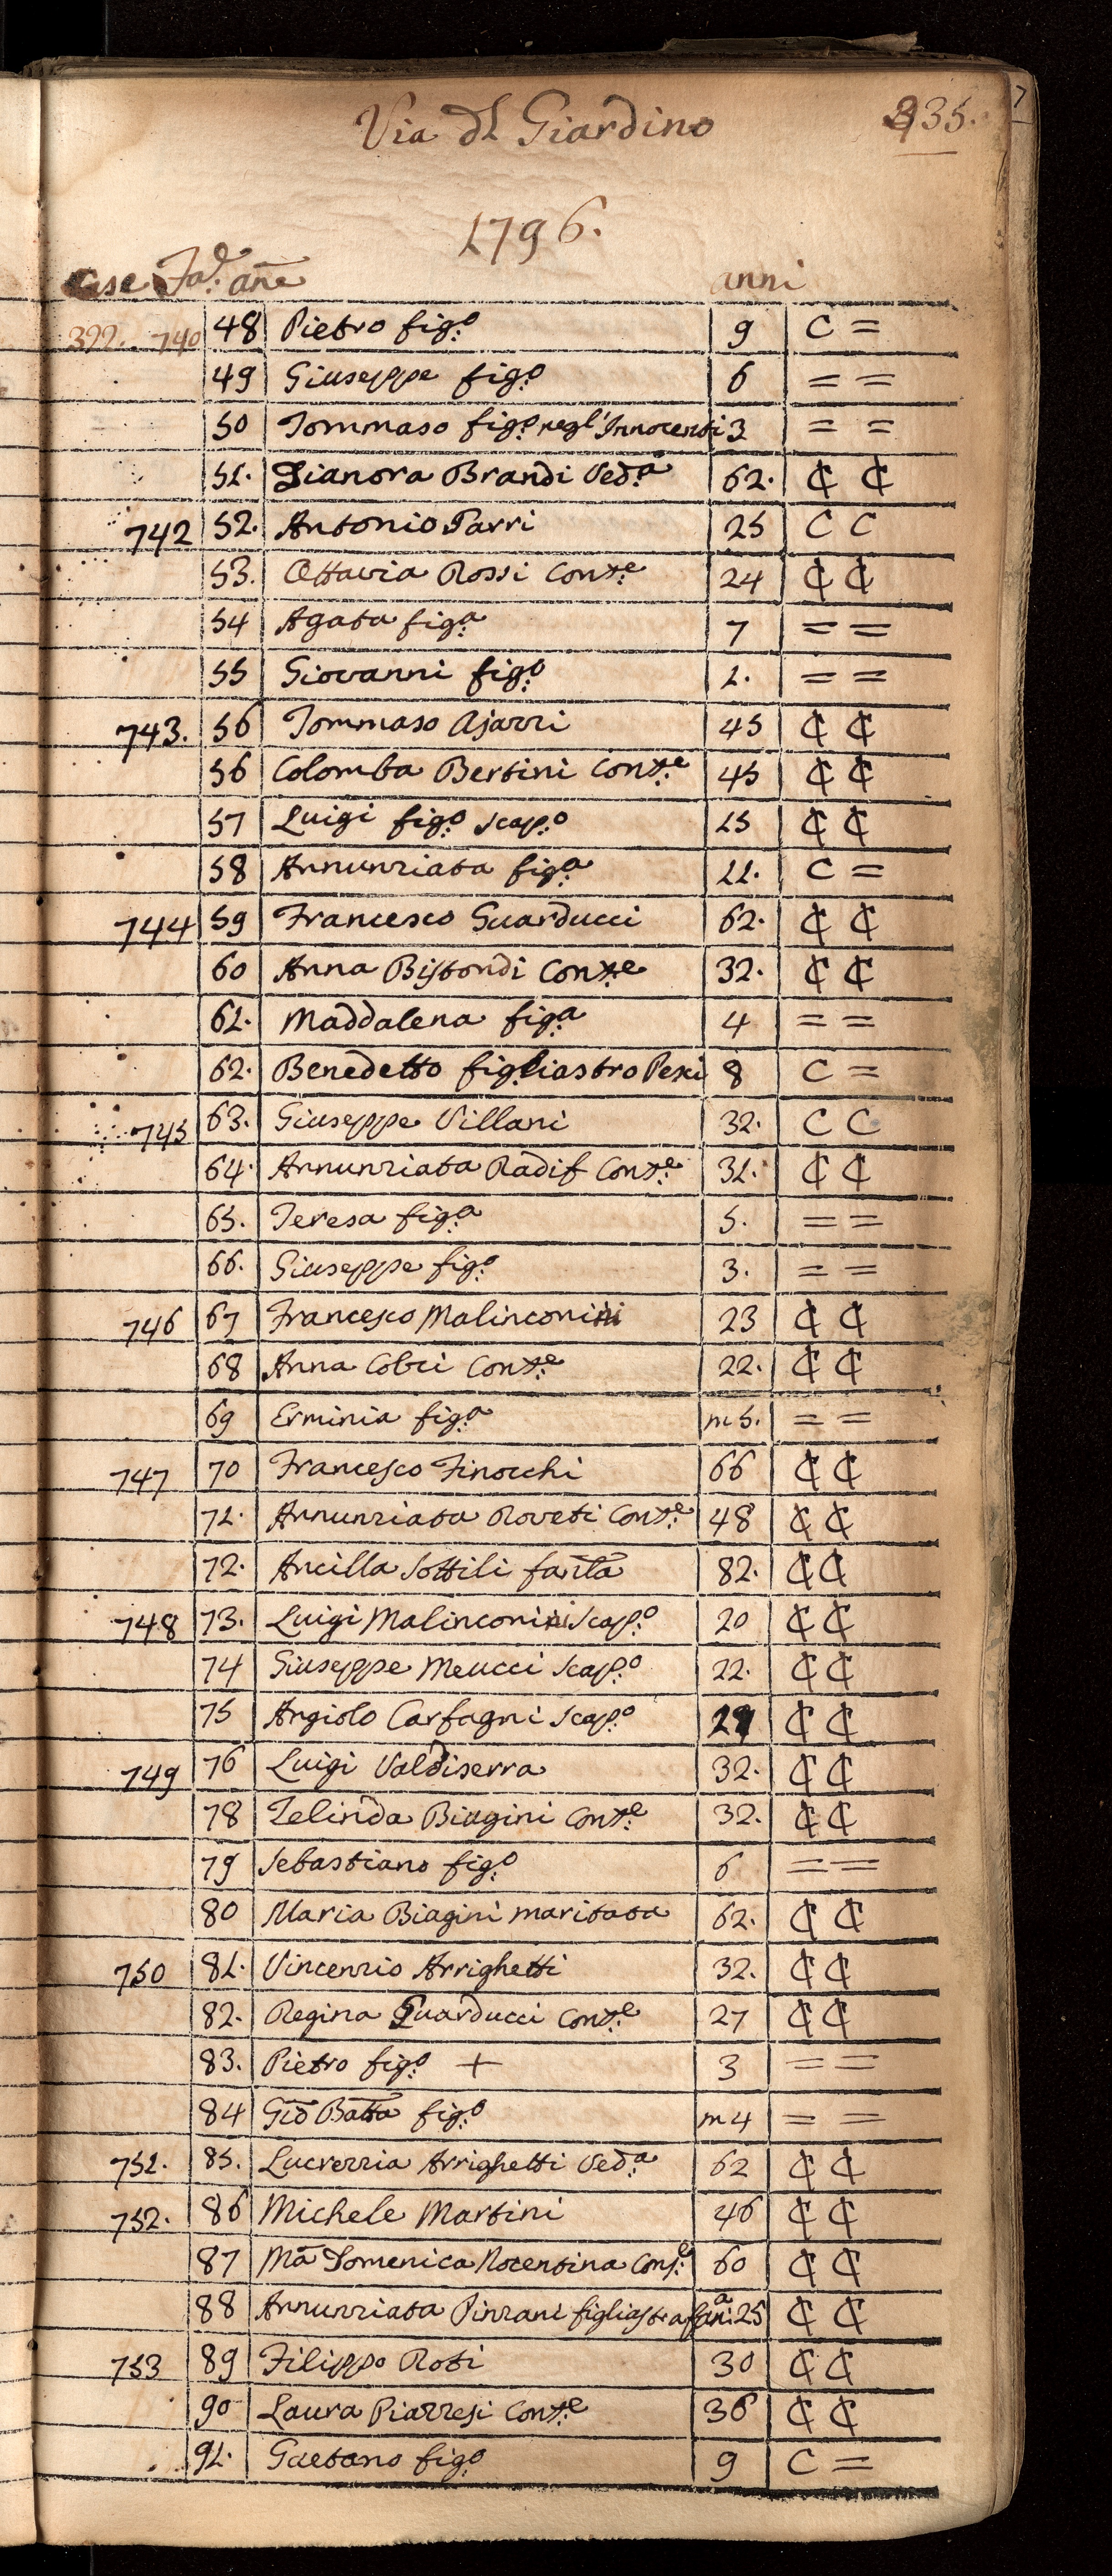 Via dl Giardino 235.
1796.
Case Fa.e añe anni
399. 740 48 Pietro fig.o 9 C =
49 Giuseppe fig.o 6 = =
50 Tommaso fig.o negl'Innocenti 3 = =
51. Dianora Brandi Ved.a 62. ₵ ₵
742 52. Antonio Parri 25 C C
53. Ottavia Rossi Conte 24 ₵ ₵
54 Agata fig.a 7 = =
55 Giovanni fig.o 1. = =
743. 56 Tommaso Ajazzi 45 ₵ ₵
56 Colomba Bertini Con.te 45 ₵ ₵
57 Luigi fig.o scap.o 15 ₵ ₵
58 Annunziata fig.a 11. C =
744 59 Francesco Guarducci 62. ₵ ₵
60 Anna Bistondi Con.te 32. ₵ ₵
61. Maddalena fig.a 4 = =
62. Benedetto figliastro Pesci 8 C =
745 63. Giuseppe Villani 32. C C
64. Annunziata Radif Con.te 31. ₵ ₵
65. Teresa fig.a 5. = =
66. Giuseppe fig.o 3. = =
746 67 Francesco Malinconi 23 ₵ ₵
68 Anna Cobci Con.te 22. ₵ ₵
69 Erminia fig.a m 5. = =
747 70 Francesco Finocchi 66 ₵ ₵
71. Annunziata Roveti Con.te 48 ₵ ₵
72. Ancilla Sottili fanta 82. ₵ ₵
748 73. Luigi Malinconi Scap.o 20 ₵ ₵
74 Giuseppe Meucci Scap.o 22. ₵ ₵
75 Angiolo Carfagni Scap.o ₵ ₵
749 76 Luigi Valdiserra 32. ₵ ₵
78 Zelinda Biagini Con.te 32. ₵ ₵
79 Sebastiano fig.o 6 = =
80 Maria Biagini maritata 62. ₵ ₵
750 81. Vincenzio Arrighetti 32. ₵ ₵
82. Regina Guarducci Con.te 27 ₵ ₵
83. Pietro fig.o + 3 = =
84 Gio Batta fig.o m 4 = =
751. 85. Lucrezzia Arrighetti Ved.a 62 ₵ ₵
752. 86 Michele Martini 46 ₵ ₵
87 Ma Domenica Nocentina Cons.e 60 ₵ ₵
88 Annunziata Pinzani figliastra 25 ₵ ₵
753 89 Filippo Roti 30 ₵ ₵
90 Laura Piazzesi Con.te 36 ₵ ₵
91. Gaetano fig.o 9 C =